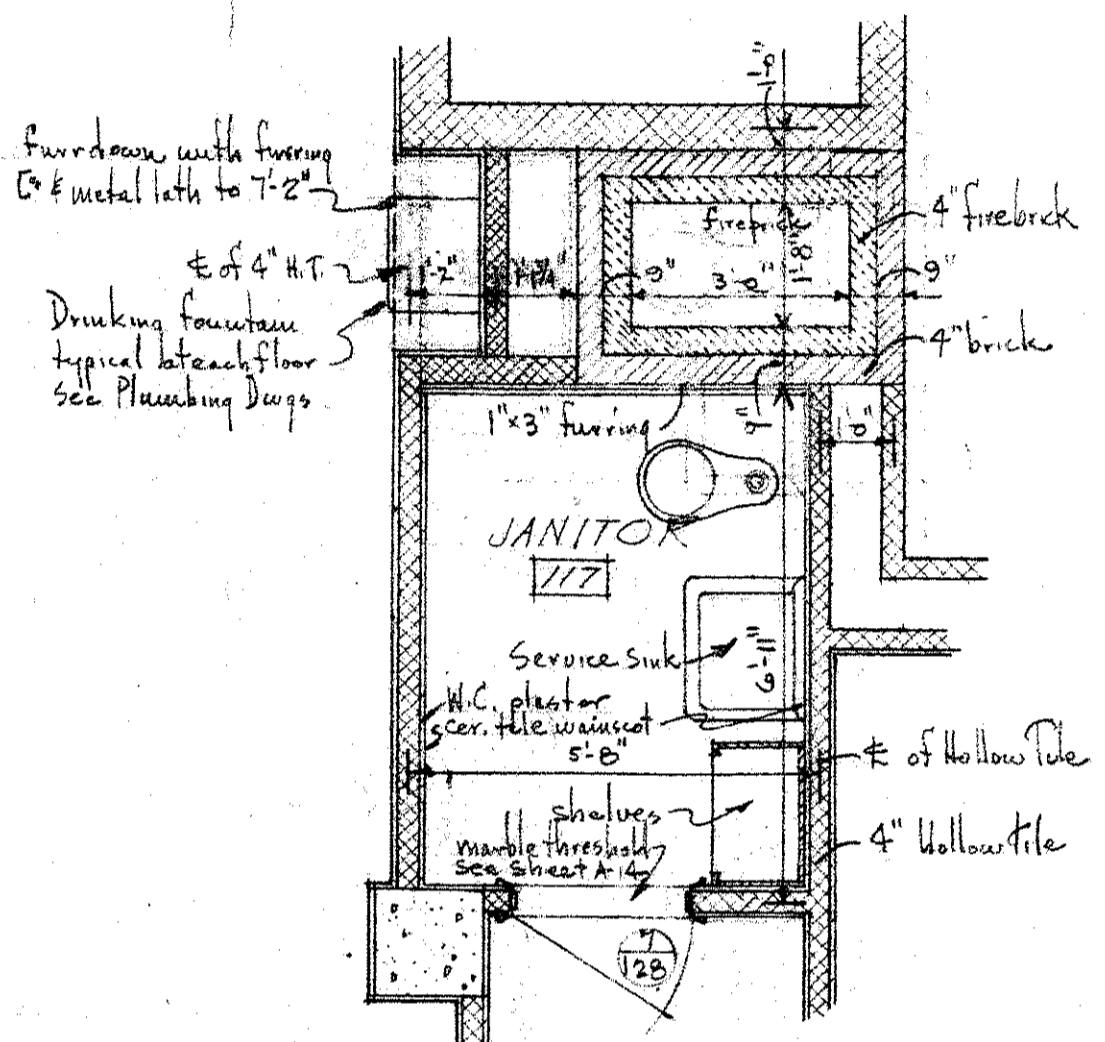 1'-0"
furrdown with furring
[s & metal lath to 7'-2"
℄ of 4" H.T.
Drinking fountain
typical at each floor
See Plumbing Dwgs
firebrick
4" firebrick
1'-2"
9"
3'-0"
1'-8"
9"
4" brick
1"x3" furring
9"
1'-0"
JANITOR
117
Service Sink
6'-11"
W.C. plaster
cer. tile wainscot
5'-8"
℄ of Hollow Tile
shelves
marble threshold
See Sheet A-14
4" Hollow tile
7
128